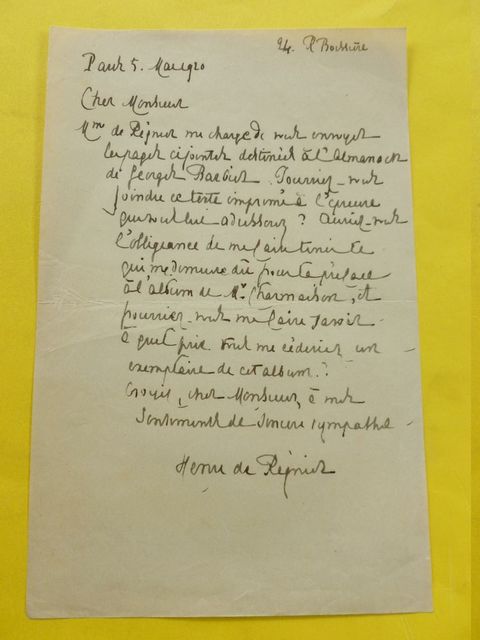 24. R Boissière
Paris 5. Mars 20
Cher Monsieur
Mme de Régnier me charge de vous envoyer
les pages ci jointes destinées à l'almanach
de Georges Barbier. Pourriez-vous
joindre ce texte imprimé à l'épreuve
que vous lui adresserez ? Auriez-vous
l'obligeance de me faire tenir ce
qui me demeure dû pour la préface
à l'album de Mr. Charmaison, et
pourriez-vous me faire savoir
à quel prix vous me céderiez un
exemplaire de cet album. ?
Croyez, cher Monsieur, à mes
sentiments de sincère sympathie
Henri de Régnier